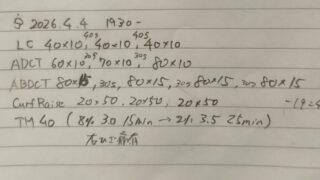 2026.4.4 1930-
LC 40×10, 40s 40×10, 40s 40×10
ADCT 60×10, 30s 70×10, 80×10
ABDCT 80×15, 30s, 80×15, 30s 80×15, 30s 80×15
Calf Raise 20×50, 20×50, 20×50
TM 40 (8% 3.0 15min → 2% 3.5 25min)